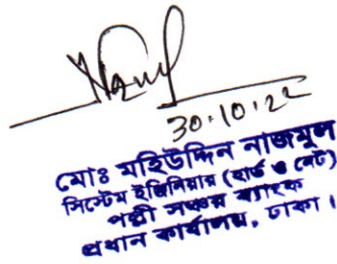 30.10.22
মোঃ মহিউদ্দিন নাজমুল
সিস্টেম ইঞ্জিনিয়ার (হার্ড ও নেট)
পল্লী সঞ্চয় ব্যাংক
প্রধান কার্যালয়, ঢাকা।